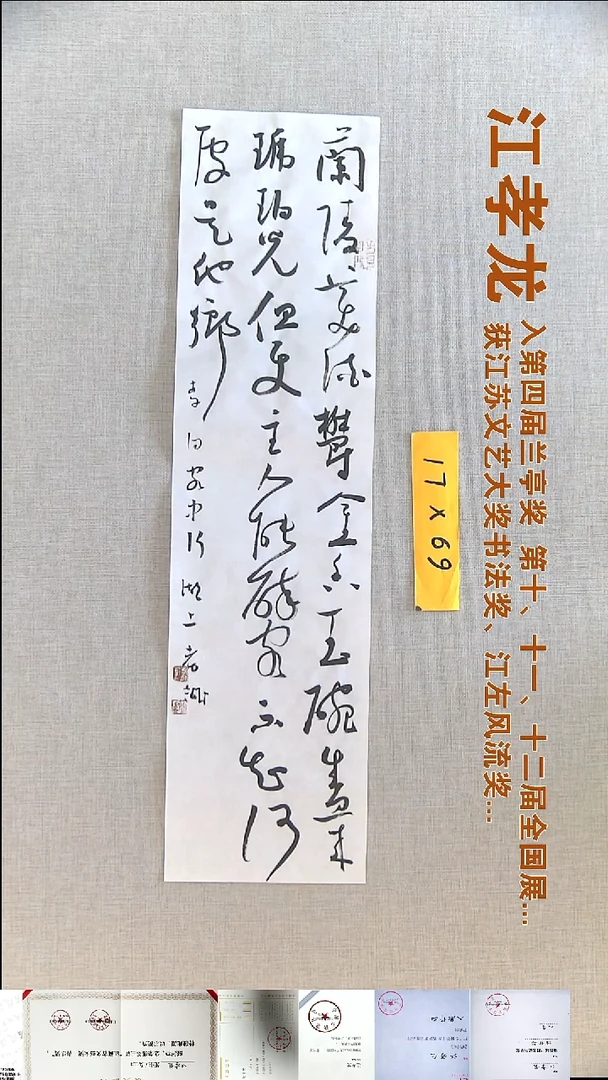 江孝龙
入第四届兰亭奖 第十、十一、十二届全国展...
获江苏文艺大奖书法奖、江左风流奖...
17 x 69
蘭陵美酒鬱金香玉碗盛来
琥珀光但使主人能醉客不知何
處是他鄉 李白客中行 湖上孝龍